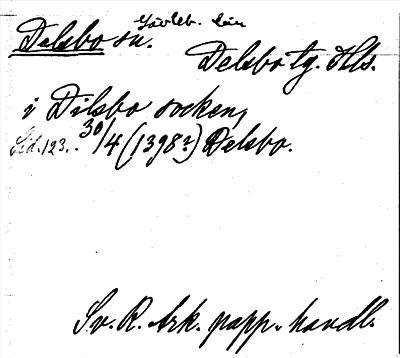 Gävleb. län
Delsbo sn.
Delsbo tg. Hls.
i Dilsbo socken,
Sid. 123. 30/4 (1398?) Delsbo.
Sv. R. Ark. papp. handl.